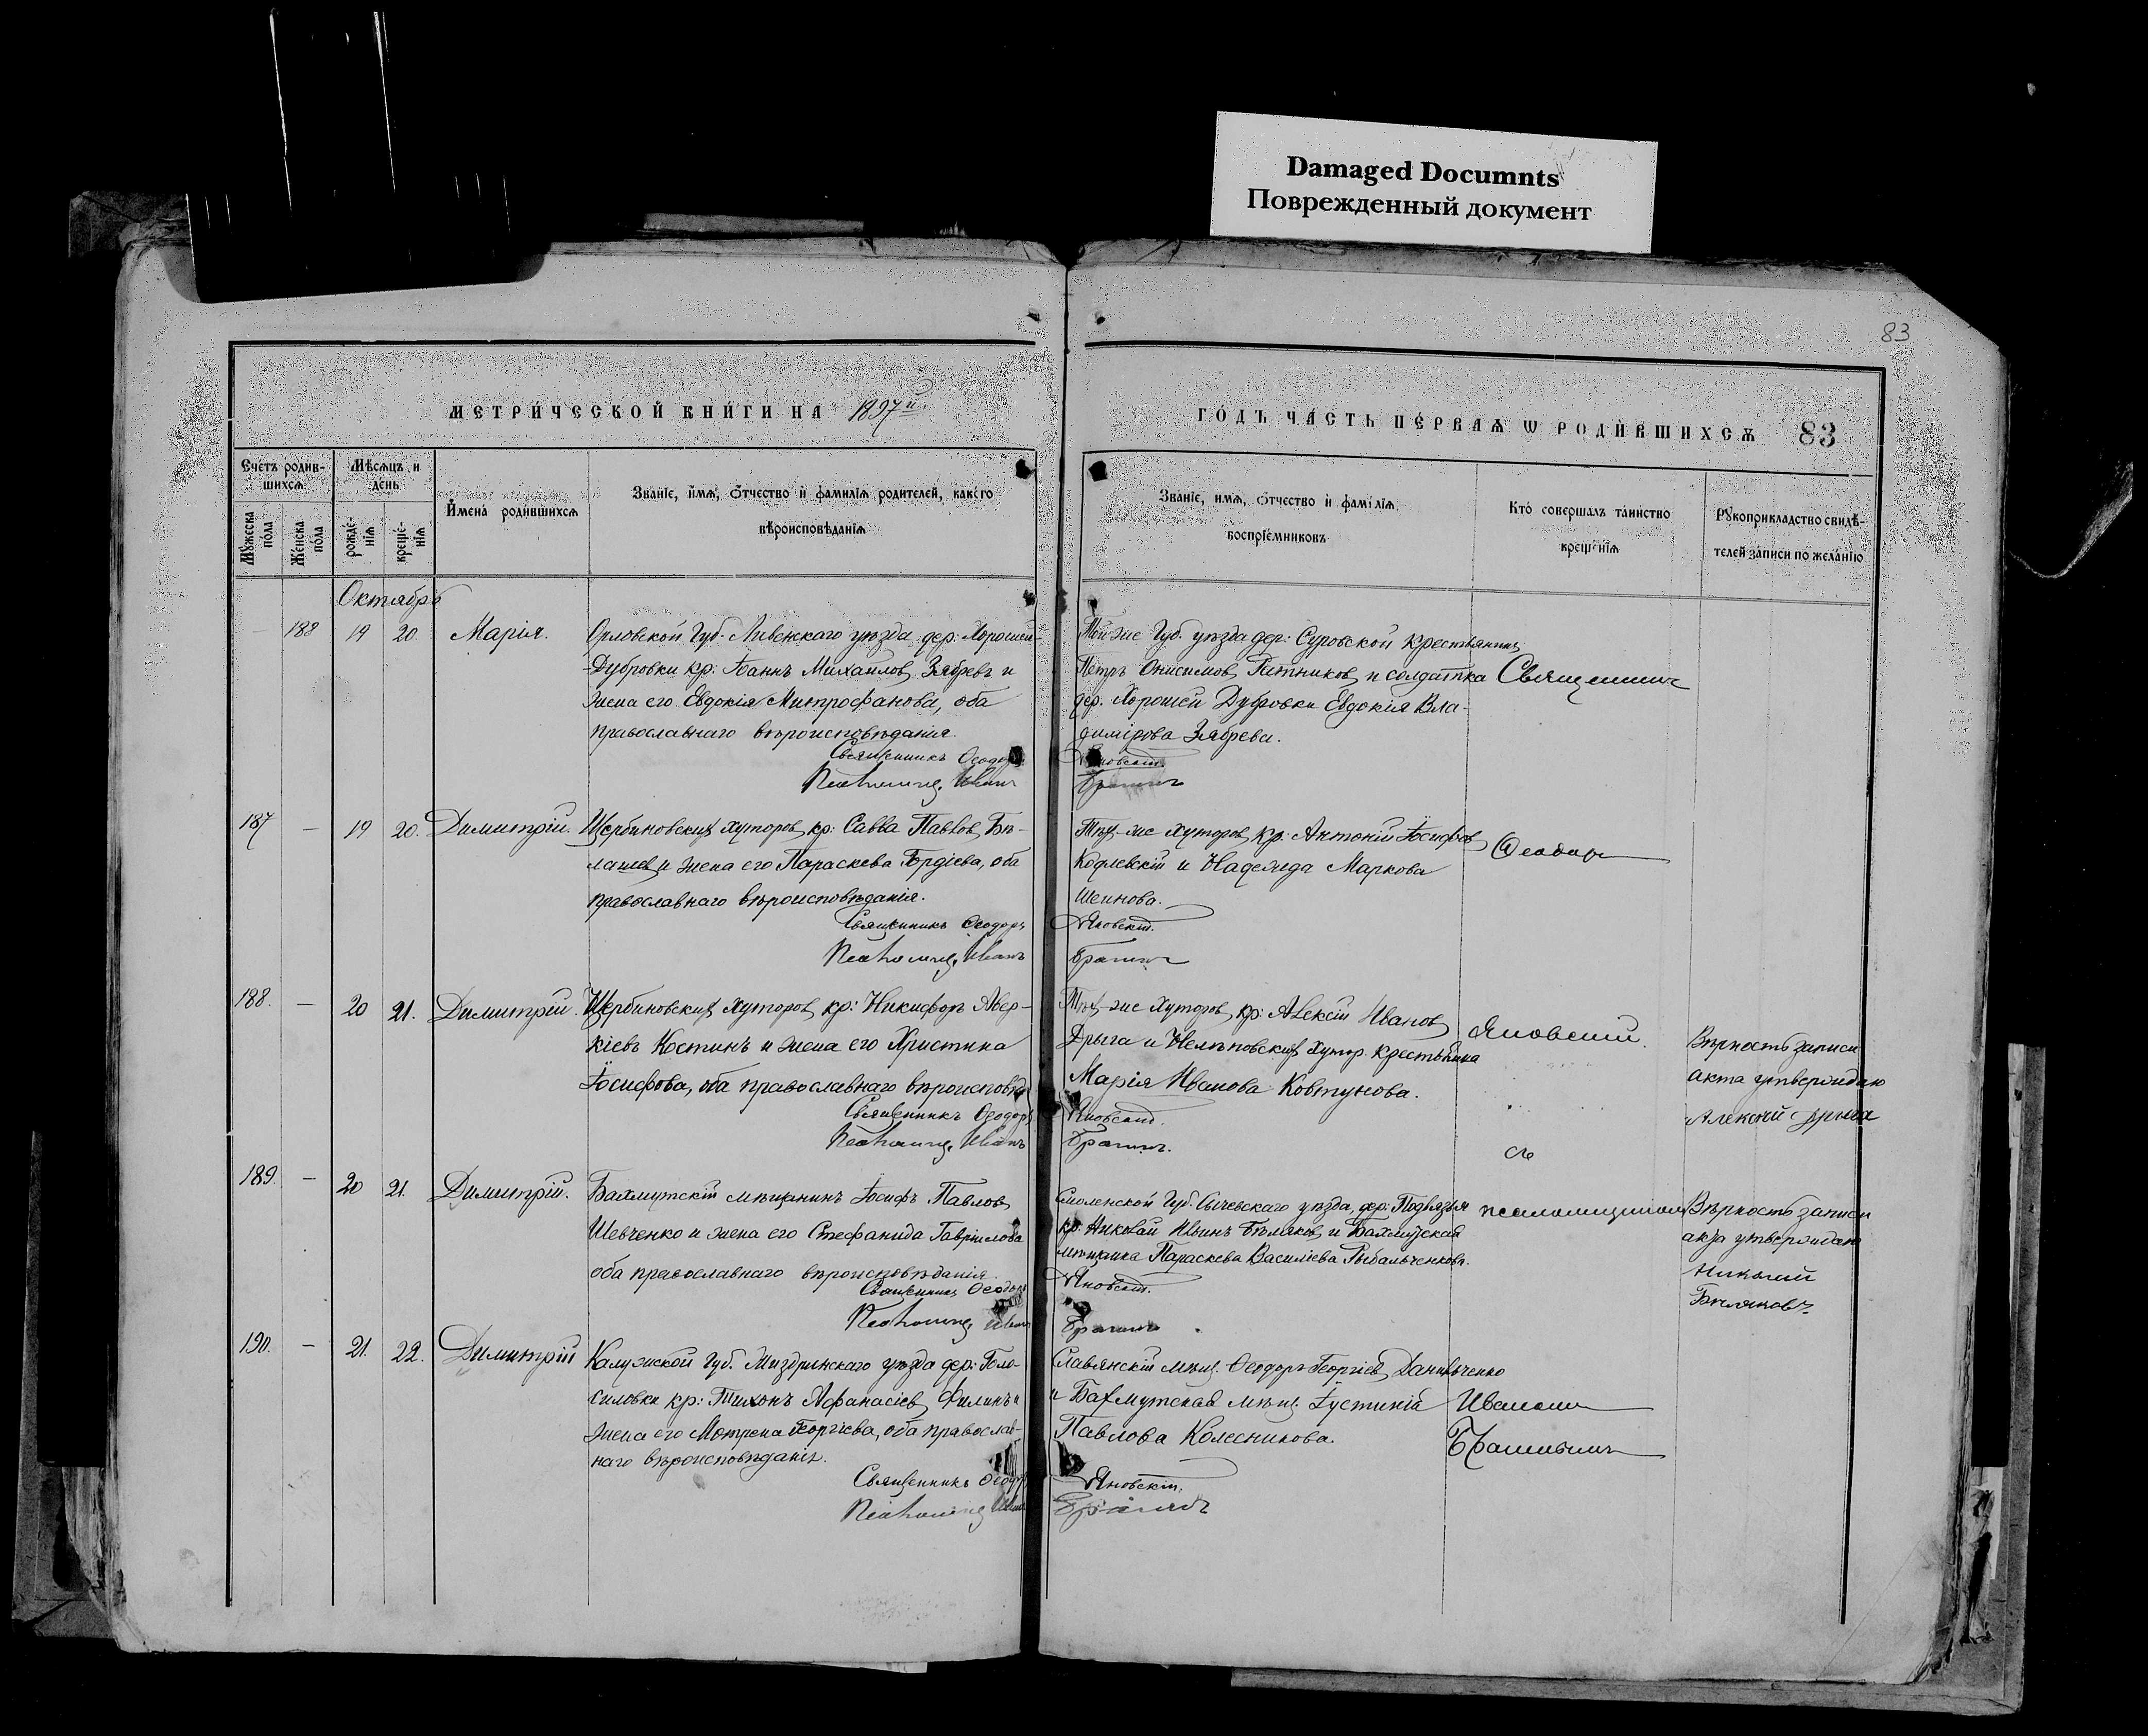 Damaged Documnts
Поврежденный документ
83
МЕТРИ́ЧЕСКОЙ КНИ́ГИ НА 1897й
ГО́ДЪ ЧА́СТЬ ПЕ́РВАѦ Ѡ РОДИ́ВШИХСѦ 83
Счетъ родив-
шихсѧ
Мѣсѧцъ и
день
Мужеска
пола
Женска
пола
рожде-
нїѧ
креще-
нїѧ
Имена родившихсѧ
Званїе, имѧ, отчество и фамилїѧ родителей, какого
вѣроисповѣданїѧ
Званїе, имѧ, отчество и фамилїѧ
воспрїемниковъ
Кто совершалъ таинство
крещенїѧ
Рукоприкладство свидѣ-
телей записи по желанїю
Октябрь
188 19 20. Марія.
Орловской Губ. Ливенскаго уѣзда дер: Хорошей
Дубровки кр: Іоаннъ Михаиловъ Зябревъ и
жена его Евдокія Митрофанова, оба
православнаго вѣроисповѣданія.
Священникъ Ѳеодоръ
Псаломщ. Иванъ
Той-же Губ. уѣзда дер: Суровской крестьянинъ
Петръ Онисимовъ Пятниковъ и солдатка
дер. Хорошей Дубровки Евдокія Вла-
димірова Зябрева.
Яновскій.
Священникъ
187 — 19 20. Димитрій.
Щербиновскихъ хуторовъ кр: Савва Павловъ Бѣ-
лашевъ и жена его Параскева Гордіева, оба
православнаго вѣроисповѣданія.
Священникъ Ѳеодоръ
Псаломщ. Иванъ
Тѣхъ-же хуторовъ кр: Антоній Іосифовъ
и Надежда Маркова
Шеинова.
Яновскій.
Ѳеодоръ
188. — 20 21. Димитрій.
Щербиновскихъ хуторовъ кр: Никифоръ Авер-
кіевъ Костинъ и жена его Христина
Іосифова, оба православнаго вѣроисповѣд.
Священникъ Ѳеодоръ
Псаломщ. Иванъ
Тѣхъ-же хуторовъ кр: Алексій Ивановъ
Дрыга и Нелѣповскихъ хутор. крестьянка
Марія Иванова Ковтунова.
Яновскій.
Яновскій.
съ
Вѣрность записи
акта утверждаю
Алексѣй Дрыга
189. — 20 21. Димитрій.
Бахмутскій мѣщанинъ Іосифъ Павловъ
Шевченко и жена его Стефанида Гавріилова
оба православнаго вѣроисповѣданія.
Священникъ Ѳеодоръ
Псаломщ. Иванъ
Смоленской Губ. Сычевскаго уѣзда, дер: Подвязья
кр: Николай Ильинъ Бѣляковъ и Бахмутская
мѣщанка Параскева Василіева Рыбальченкова.
Яновскій.
псаломщикомъ
Вѣрность записи
акта утверждаю
Николай
Бѣляковъ
190. — 21. 22. Димитрій
Калужской Губ. уѣзда дер: Голо-
силовки кр: Тихонъ Афанасіевъ Филинъ и
жена его Мотрена Георгіева, оба православ-
наго вѣроисповѣданія.
Священникъ Ѳеодоръ
Псаломщ. Иванъ
Славянскій мѣщ. Ѳеодоръ Георгіевъ Данильченко
и Бахмутская мѣщ. Іустинія
Павлова Колесникова.
Яновскій.
Иваномъ